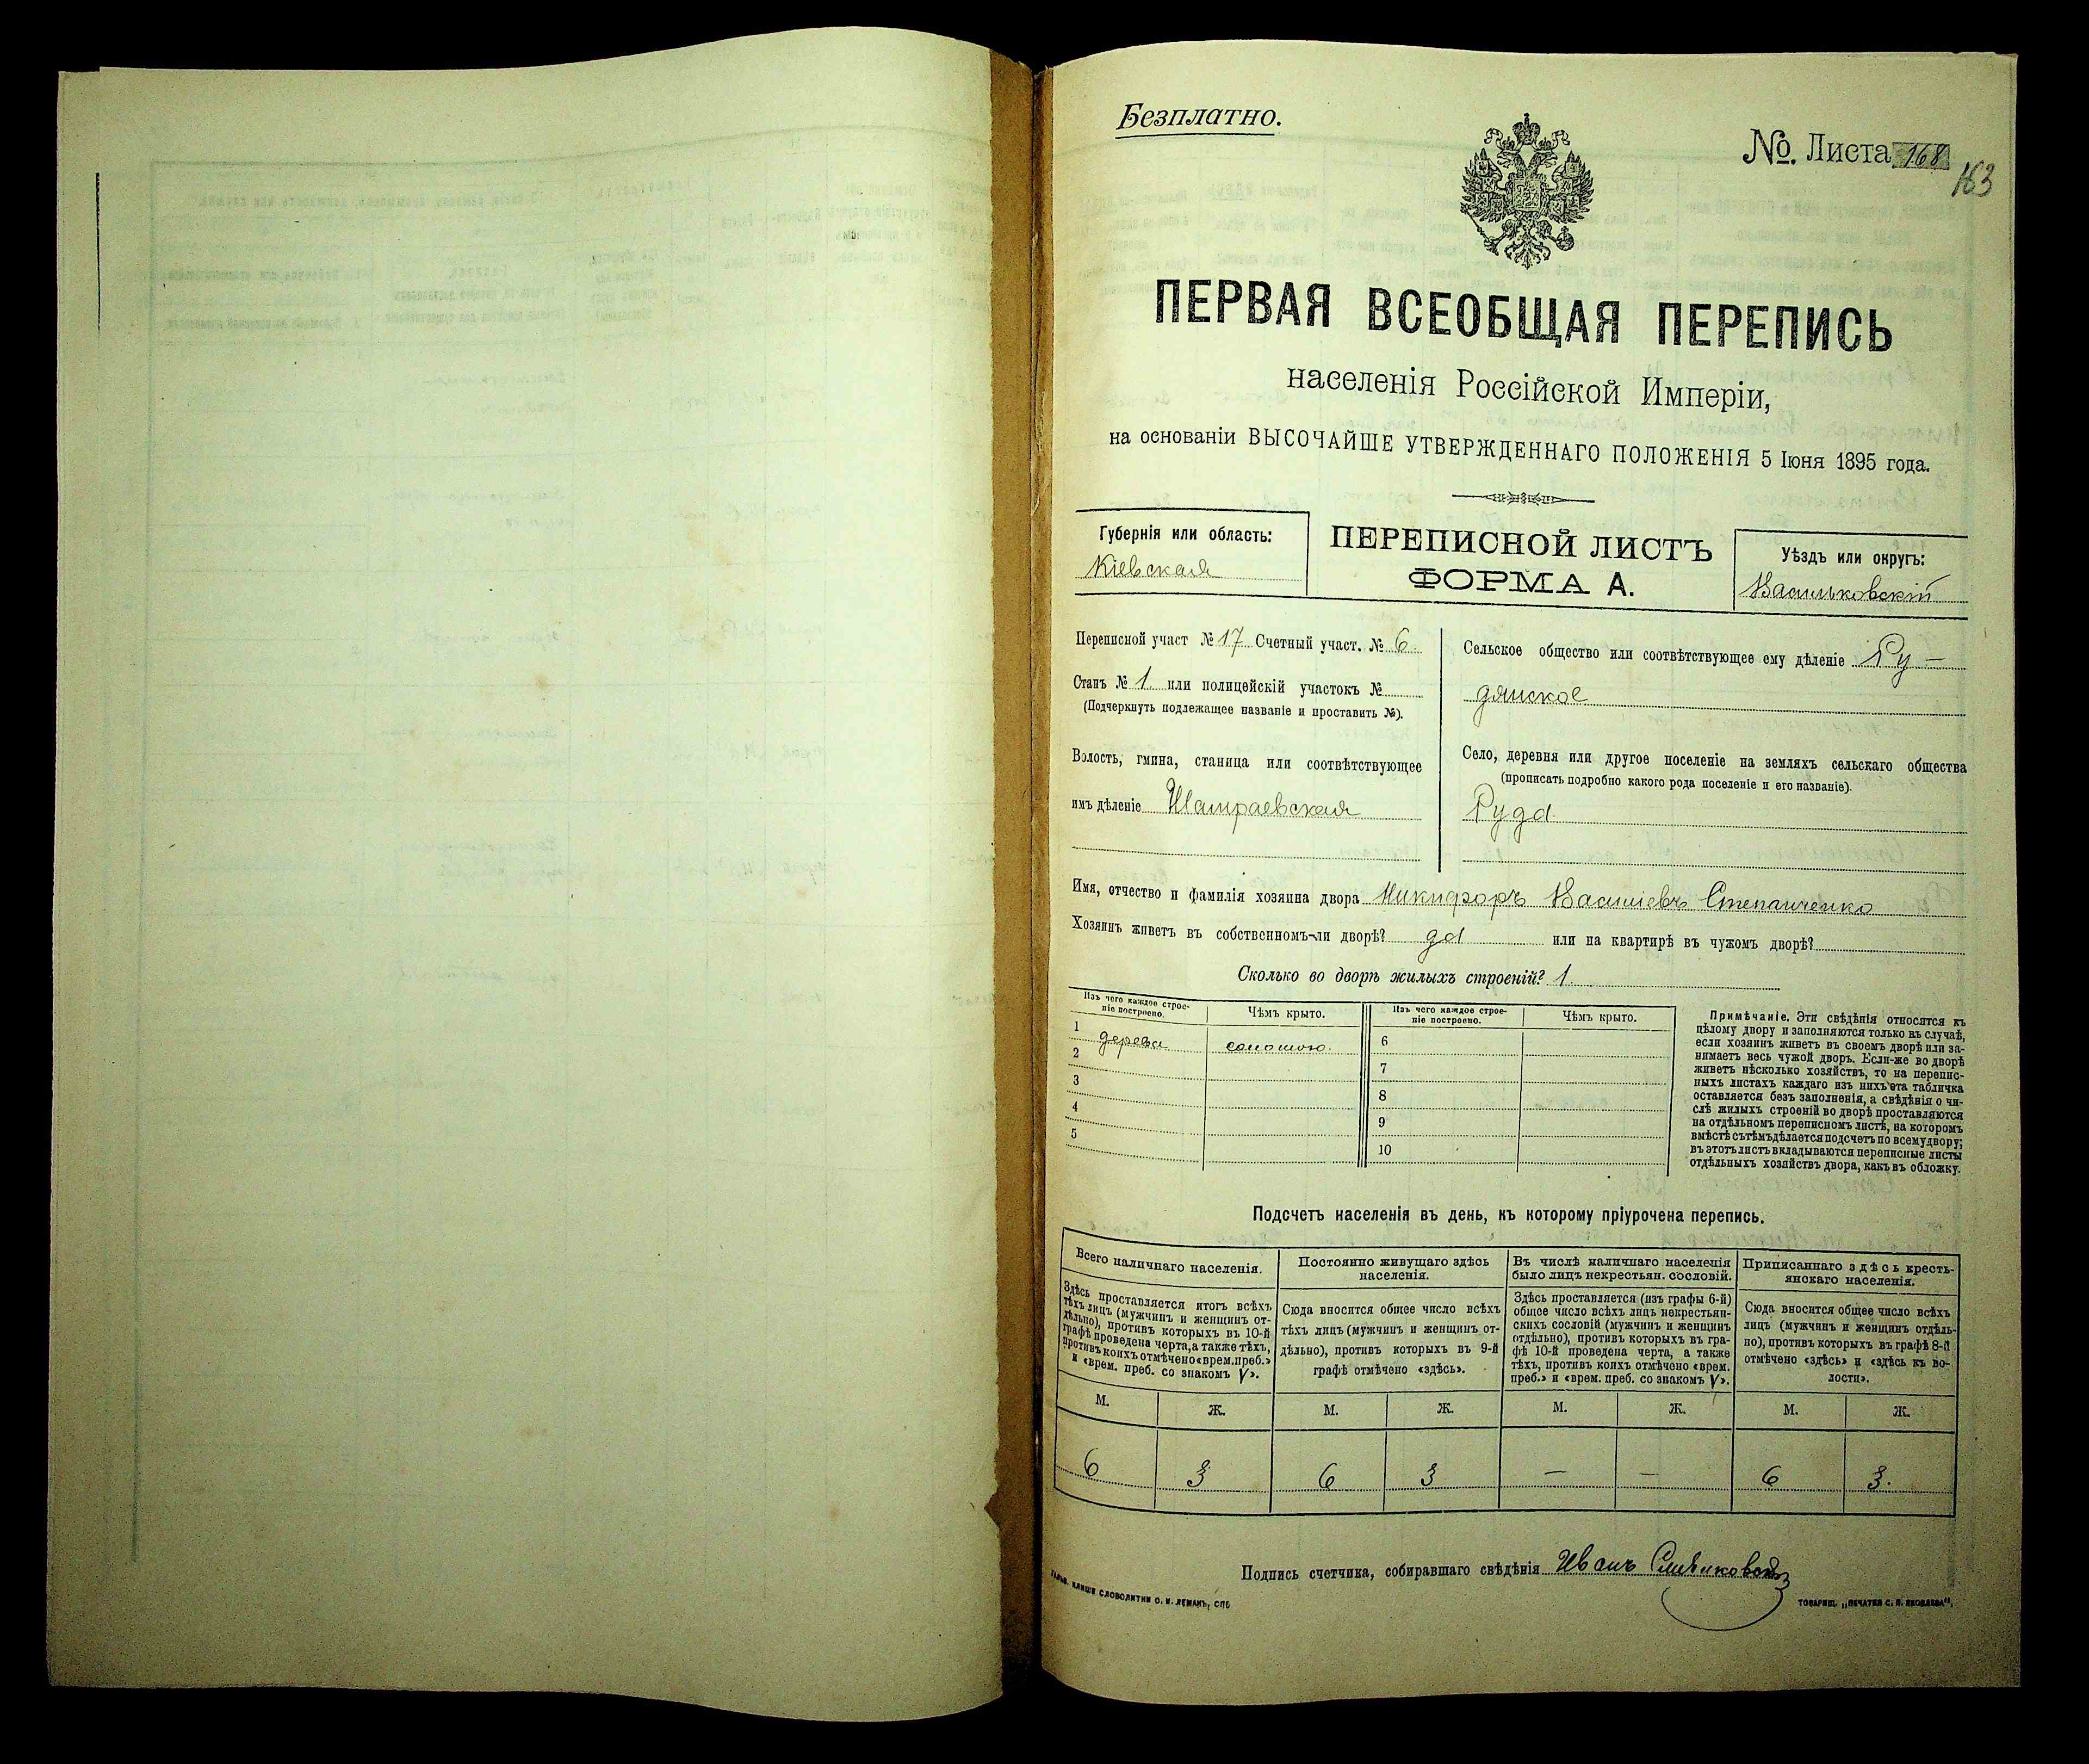 Безплатно.
№. Листа 168
163
ПЕРВАЯ ВСЕОБЩАЯ ПЕРЕПИСЬ
населенія Россійской Имперіи,
на основаніи ВЫСОЧАЙШЕ УТВЕРЖДЕННАГО ПОЛОЖЕНІЯ 5 Іюня 1895 года.
Губернія или область:
Кіевская
ПЕРЕПИСНОЙ ЛИСТЪ
ФОРМА А.
Уѣздъ или округъ:
Васильковскій
Переписной участ № 17 Счетный участ. № 6.
Станъ № 1 или полицейскій участокъ №
(Подчеркнуть подлежащее названіе и проставить №).
Волость, гмина, станица или соотвѣтствующее
имъ дѣленіе Шамраевская
Сельское общество или соотвѣтствующее ему дѣленіе Ру-
дянское
Село, деревня или другое поселеніе на земляхъ сельскаго общества
(прописать подробно какого рода поселеніе и его названіе).
Руда
Имя, отчество и фамилія хозяина двора Никифоръ Васильевъ Степанченко
Хозяинъ живетъ въ собственномъ-ли дворѣ? да или на квартирѣ въ чужомъ дворѣ?
Сколько во дворѣ жилыхъ строеній? 1.
Изъ чего каждое строе-
ніе построено.
Чѣмъ крыто.
Изъ чего каждое строе-
ніе построено.
Чѣмъ крыто.
1 дерева соломою. 6
2 7
3 8
4 9
5 10
Примѣчаніе. Эти свѣдѣнія относятся къ
цѣлому двору и заполняются только въ случаѣ,
если хозяинъ живетъ въ своемъ дворѣ или за-
нимаетъ весь чужой дворъ. Если-же во дворѣ
живетъ нѣсколько хозяйствъ, то на перепис-
ныхъ листахъ каждаго изъ нихъ эта табличка
оставляется безъ заполненія, а свѣдѣнія о чи-
слѣ жилыхъ строеній во дворѣ проставляются
на отдѣльномъ переписномъ листѣ, на которомъ
вмѣстѣ съ тѣмъ дѣлается подсчетъ по всему двору;
въ этотъ листъ вкладываются переписные листы
отдѣльныхъ хозяйствъ двора, какъ въ обложку.
Подсчетъ населенія въ день, къ которому пріурочена перепись.
Всего наличнаго населенія.
Здѣсь проставляется итогъ всѣхъ
тѣхъ лицъ (мужчинъ и женщинъ от-
дѣльно), противъ которыхъ въ 10-й
графѣ проведена черта, а также тѣхъ,
противъ коихъ отмѣчено «врем. преб.»
и «врем. преб. со знакомъ V».
Постоянно живущаго здѣсь
населенія.
Сюда вносится общее число всѣхъ
тѣхъ лицъ (мужчинъ и женщинъ от-
дѣльно), противъ которыхъ въ 9-й
графѣ отмѣчено «здѣсь».
Въ числѣ наличнаго населенія
было лицъ некрестьян. сословій.
Здѣсь проставляется (изъ графы 6-й)
общее число всѣхъ лицъ некрестьян-
скихъ сословій (мужчинъ и женщинъ
отдѣльно), противъ которыхъ въ гра-
фѣ 10-й проведена черта, а также
тѣхъ, противъ коихъ отмѣчено «врем.
преб.» и «врем. преб. со знакомъ V».
Приписаннаго здѣсь кресть-
янскаго населенія.
Сюда вносится общее число всѣхъ
лицъ (мужчинъ и женщинъ отдѣль-
но), противъ которыхъ въ графѣ 8-й
отмѣчено «здѣсь» и «здѣсь къ во-
лости».
М. Ж. М. Ж. М. Ж. М. Ж.
6 3 6 3 — — 6 3.
Подпись счетчика, собиравшаго свѣдѣнія Иванъ
КЛИШЕ СЛОВОЛИТНИ О. И. ЛЕМАНЪ, СПБ
ТОВАРИЩ. „ПЕЧАТНЯ С. П. ЯКОВЛЕВА“,